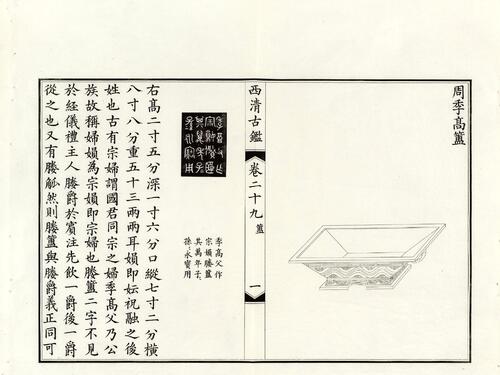 周季高簠
西清古鑑
卷二十九
簠
一
季高父作
宗㜏媵簠
其萬年子〻
孫〻永寶用
右高二寸五分深一寸六分口縱七寸二分橫
八寸八分重五十三兩兩耳㜏即妘祝融之後
姓也古有宗婦謂國君同宗之婦季高父乃公
族故稱婦㜏為宗㜏即宗婦也媵簠二字不見
於經儀禮主人媵爵於賓注先飲一爵後一爵
從之也又有媵觚然則媵簠與媵爵義正同可